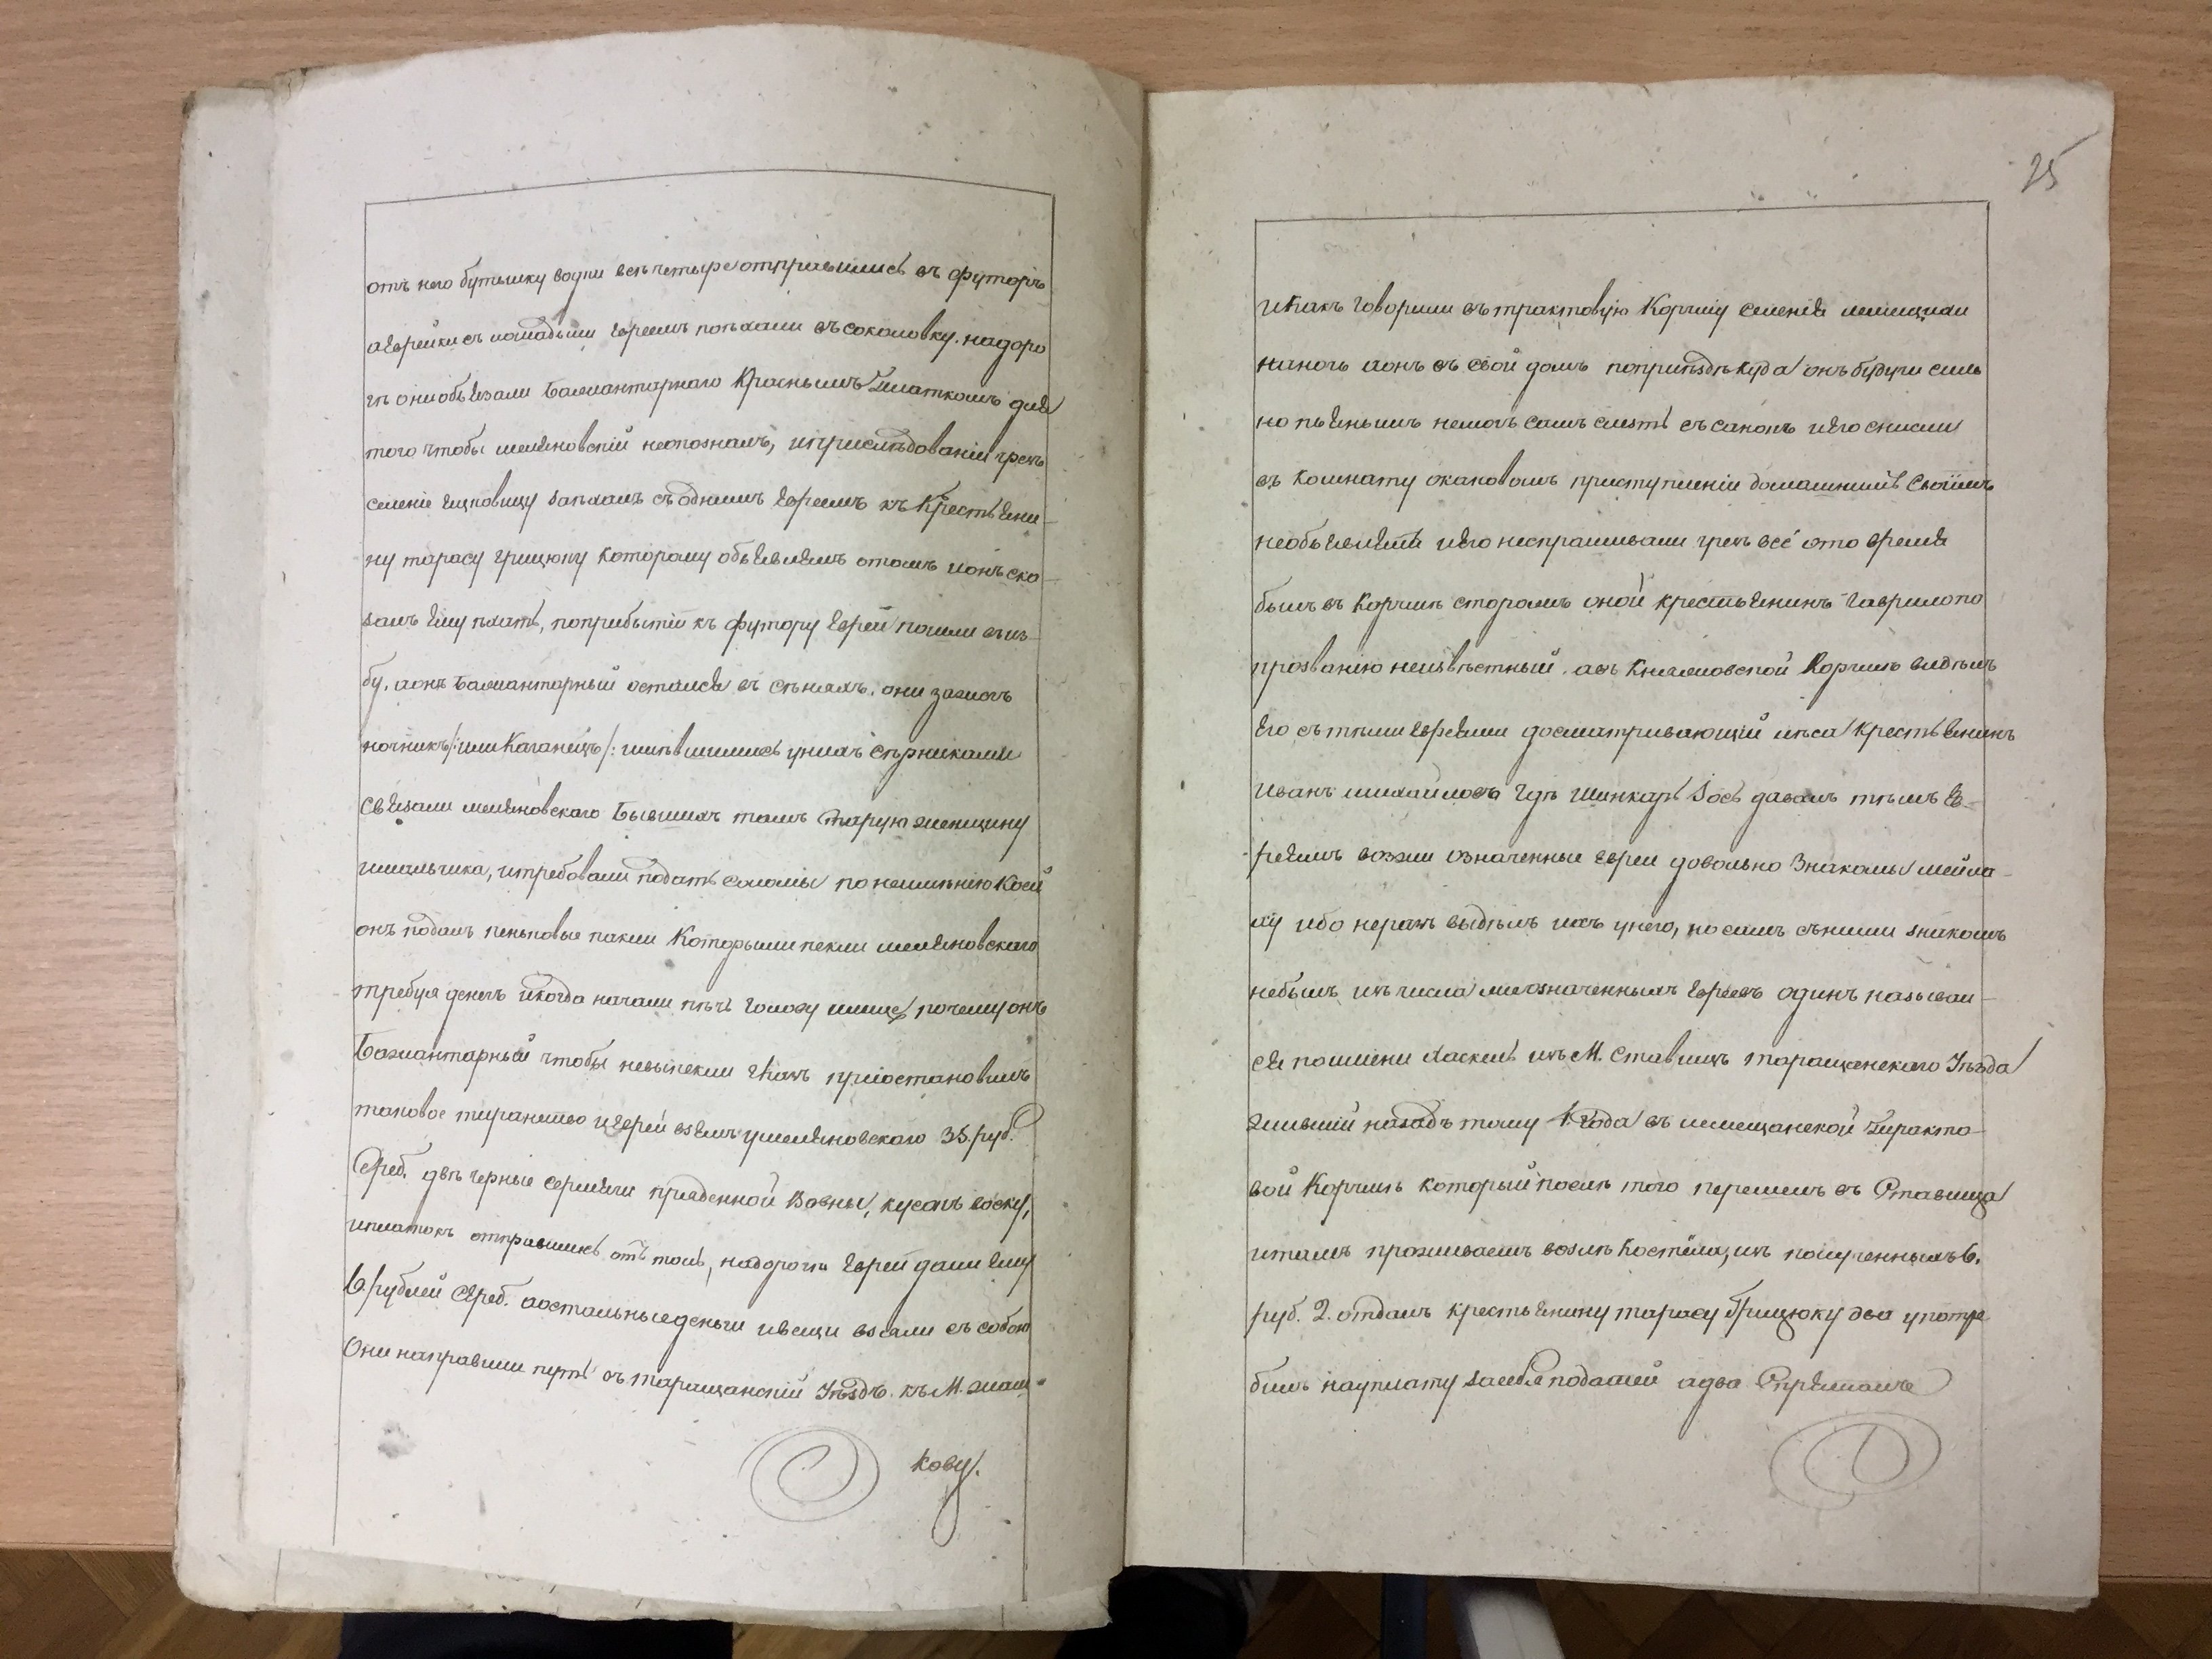 отъ него бутылку водки всѣ четыре отправились въ футоръ
а Еврейки съ лошадьми Евреемъ поѣхали въ соколовку. на доро
гѣ они обвязали Бажантарнаго Краснымъ Платкомъ для
того чтобы мельновскій неопозналъ, и при слѣдованіи чрезъ
селеніе заѣхалъ съ однимъ Евреемъ къ Крестьяни-
ну тарасу грицюку которому объявлялъ о томъ и онъ ска-
залъ Ему ѣхать, по прибытіи къ футору Евреи пошли въ из-
бу. а онъ Бажантарный остался въ сѣняхъ. они зажогъ
ночникъ /: или Каганецъ /: имѣвшимись у нихъ сѣрниками
Связали мельновскаго Бывшихъ тамъ старую женщину
и мальчика, и требовали подать соломы по неимѣнію Коей
онъ подалъ пеньковые пакли Которыми пекли мельновскаго
требуя денегъ и когда начали пѣчь голову и лице, почему онъ
Бажантарный чтобы невыпекли глазъ пріостановилъ
таковое тиранство и Евреи взялъ у мельновскаго 35. руб.
Сереб. двѣ черніе сермяги пряденной Вовны, кусокъ воску,
и платокъ отправились отъ толь, на дорогѣ Евреи дали Ему
6. рублей Сереб. а остальные деньги и вещи взяли съ собою
Они направили путь въ таращанскій Уѣздъ. къ М. жаш-
кову.
25
и Какъ говорили въ трактовую Корчму селенія
на ночь а онъ въ свой домъ по приѣздѣ куда онъ будучи силь
но пьянымъ немогъ самъ слѣзть съ санокъ и Его сняли
въ комнату о каковомъ приступленіи домашнимъ Своїмъ
необъявлялъ и Его неспрашивали чрезъ всё ото время
былъ въ Корчмѣ сторожъ оной крестьянинъ Гаврило по
прозванію неизвѣстный. а въ Корчмѣ видѣлъ
Его съ тѣми Евреями досматривающій лѣса Крестьянинъ
Иванъ михайловъ гдѣ Шинкарь Іось давалъ тѣмъ Ев-
реямъ возжи означенные Евреи довольно Знакомы
ибо неразъ выдѣлъ ихъ у него, но самъ съ ними знакомъ
небылъ изъ числа Евреевъ одинъ называл-
ся по имени Хаскель изъ М. Ставищъ таращанскаго Уѣзда
жившій назадъ тому 1. Года въ Тракто-
вой Корчмѣ который послѣ того перешелъ въ Ставища
и тамъ проживаетъ возлѣ Костёла, изъ полученныхъ 6.
руб. 2. отдалъ крестьянину тарасу Грицюку два употре
билъ на уплату за себя податей а два Спряталъ